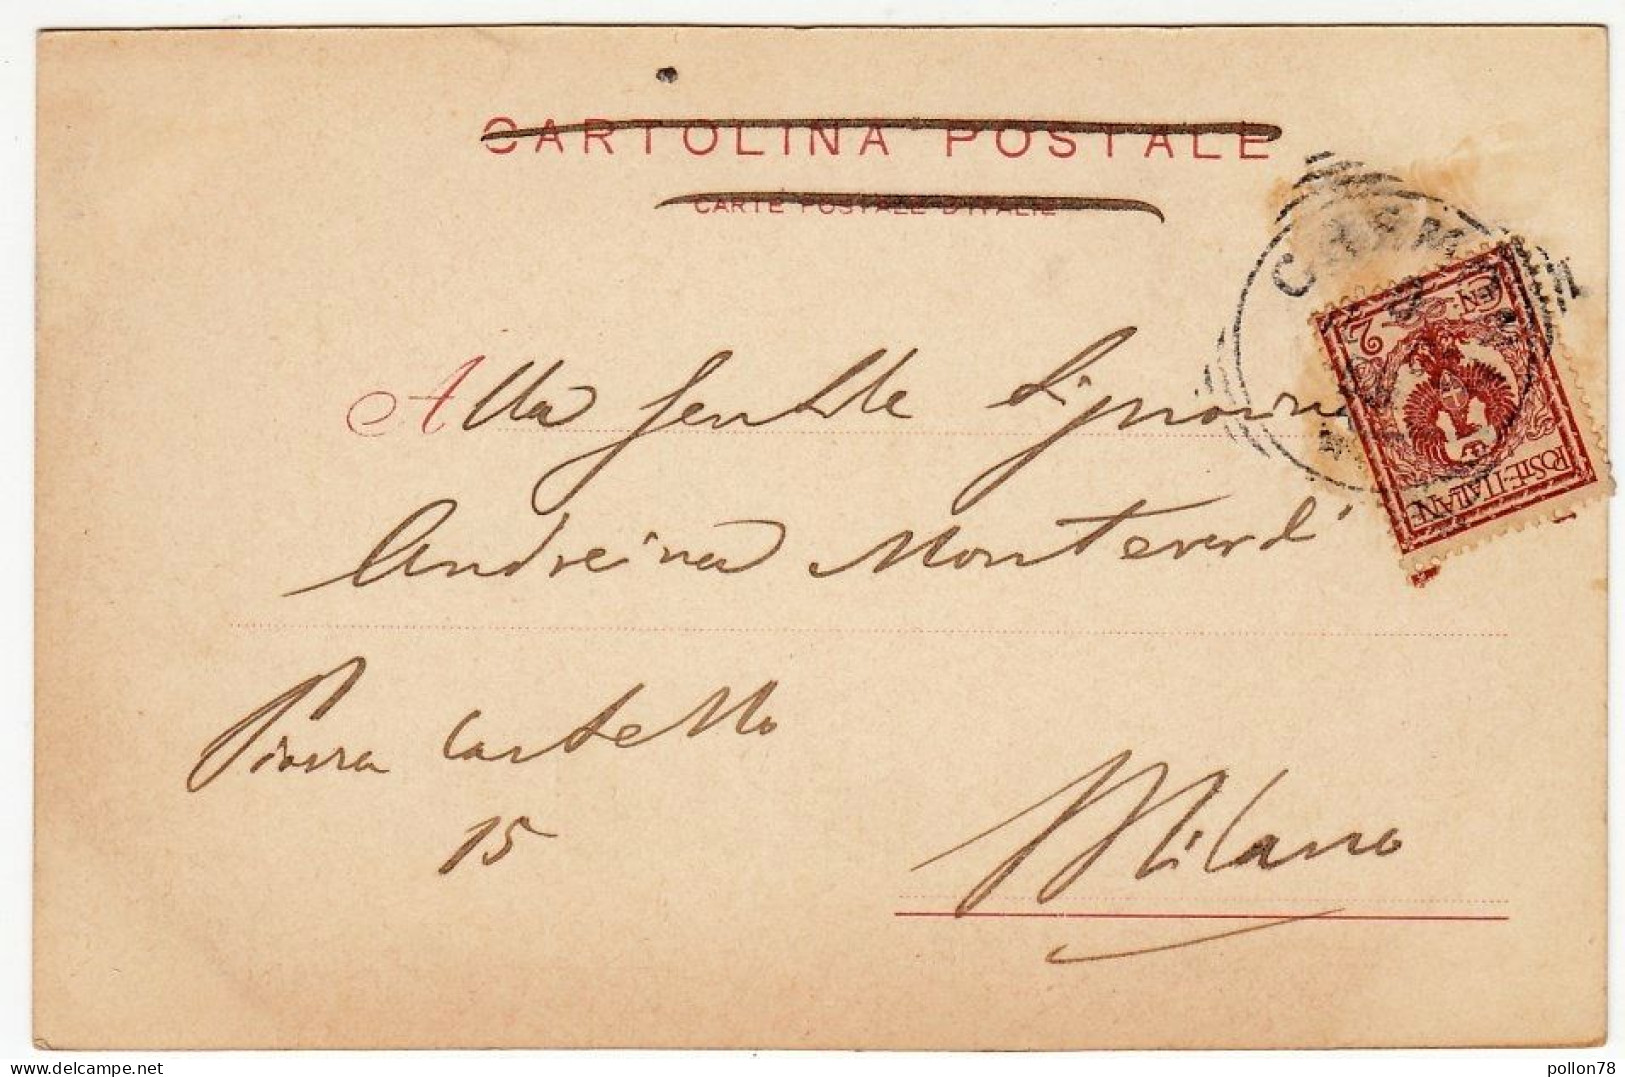 CARTOLINA POSTALE
CARTE POSTALE D'ITALIE
Alla gentile Signorina
Andreina Monteverdi
Piazza Castello
15
Milano
CEN. 2
POSTE·ITALIANE
delcampe.net
pollon78